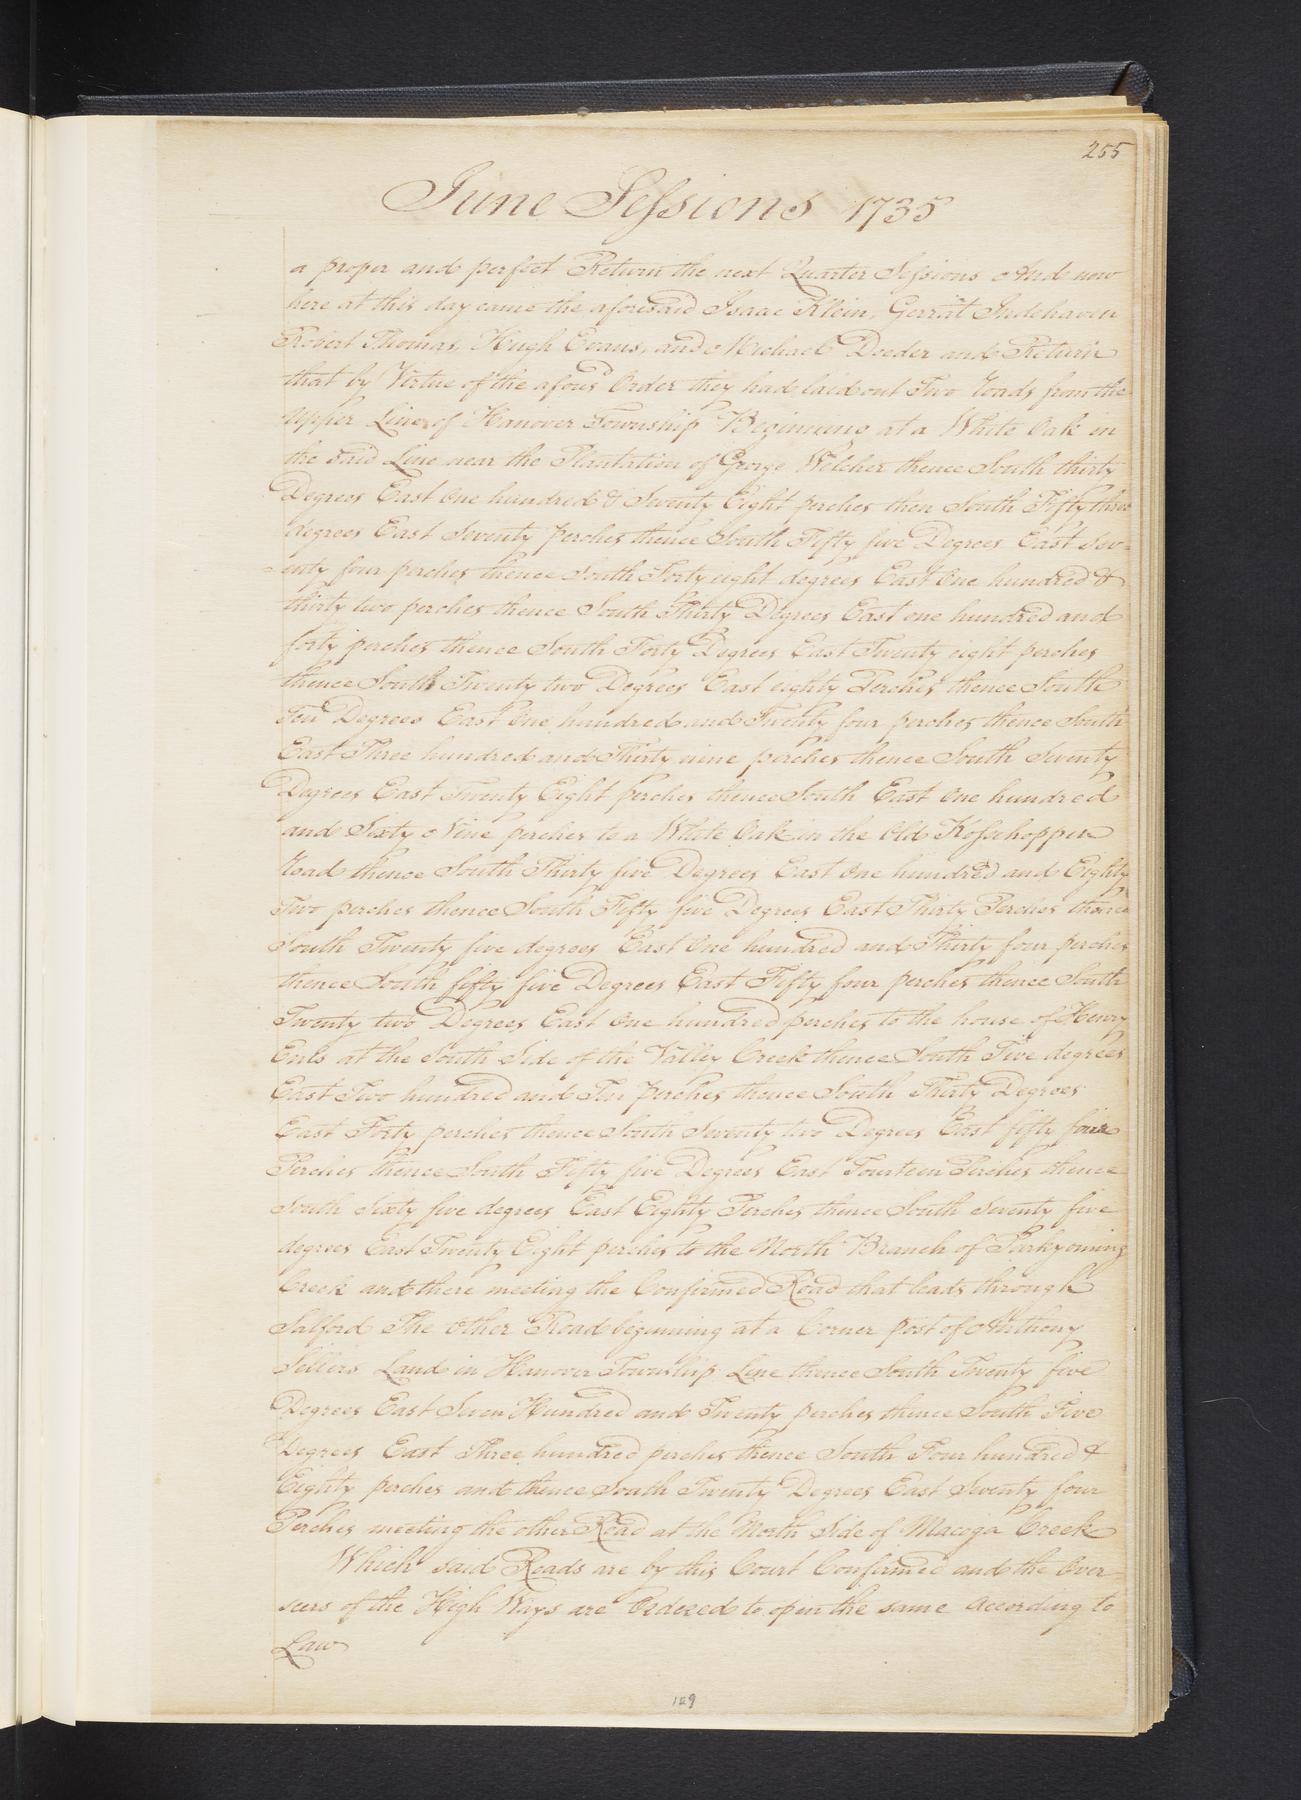 255
June Sessions 1735
a proper and perfect Return the next Quarter Sessions And now
here at this day came the aforesaid Isaac Klein, Gerrat Indehaven
Robert Thomas, Hugh Evans, and Michael Doeder and Return
that by Virtue of the afousd Order they had laid out Two Roads from the
upper Line of Hanover Township Beginning at a White Oak in
the said Line near the Plantation of George Welcher thence South thirty
Degrees East One hundred & Seventy Eight perches then South Fifty three
degrees East Seventy perches thence South Fifty five Degrees East Sev=
=enty four perches thence South Forty eight degrees East One hundred &
thirty two perches thence South Thirty Degrees East one hundred and
forty perches thence South Forty Degrees East Twenty eight perches
thence South Twenty two Degrees East eighty Perches thence South
Ten Degrees East One hundred and Twenty four perches thence South
East Three hundred and Thirty nine perches thence South Seventy
Degrees East Twenty Eight perches thence South East One hundred
and Sixty Nine perches to a White Oak in the Old Kosschoppen
Road thence South Thirty five Degrees East One hundred and Eighty
Two perches thence South Fifty five Degrees East Thirty Perches thence
South Twenty five degrees East One hundred and Thirty four perches
thence South fifty five Degrees East Fifty four perches thence South
Twenty two Degrees East One hundred perches to the house of Henry
Enls at the South Side of the Valley Creek thence South Five degrees
East Two hundred and Ten perches thence South Thirty Degrees
East Forty perches thence South Seventy two Degrees East fifty four
Perches thence South Fifty five Degrees East Fourteen Perches thence
South Sixty five degrees East Eighty Perches thence South Seventy five
degrees East Twenty Eight perches to the North Branch of Parkyoming
Creek and there meeting the Confirmed Road that leads through
Salford The Other Road beginning at a Corner post of Anthony
Sellers Land in Hanover Township Line thence South Twenty five
Degrees East Seven Hundred and Twenty perches thence South Five
Degrees East Three hundred perches thence South Four hundred &
Eighty perches and thence South Twenty Degrees East Seventy four
Perches meeting the other Road at the North Side of Macoja Creek
Which said Roads are by this Court Confirmed and the Over=
seers of the High Ways are Ordered to open the same According to
Law
129